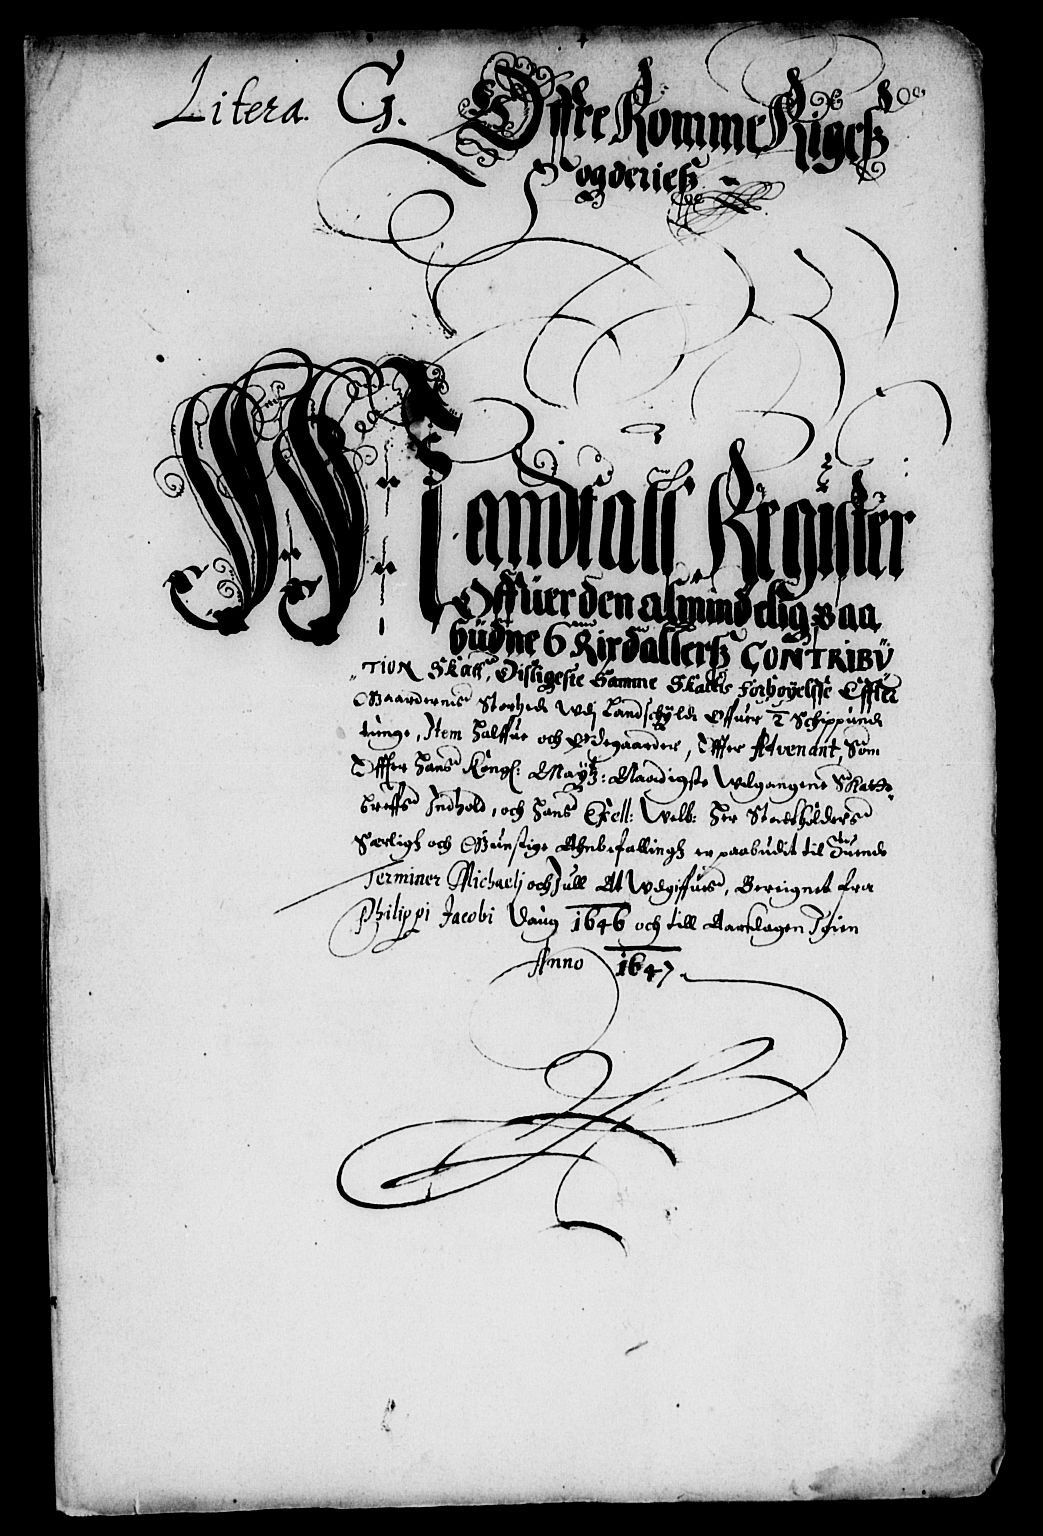 Litera. G. Offre Romme Riges
fogderies
Mandtals Register
Offuer den almindelig paa
büdne 6 Rixdallers CONTRIBÜ
TION Skatt, Disligeste Samme Skattis forhøyelsse Effter
Gaardernis Storhed udj Landschyld Offuer Schippunds
tunge, Item halffue och Ødegaarder, Effter Advenant, Som
Effter hans Kongl: Maytz: Naadigste udgangene Skatte
breffs Indhold, och hans Excell: Welb: Her Stadtholders
Særligh och Gunstige Ahnbefallingh er paabudit til Tuende
Terminer Michaelj och Jull At udgiffues, Beregnet fra
Philippi Jacobi Daug 1646 och till Aarsdagen Igien
Anno 1647